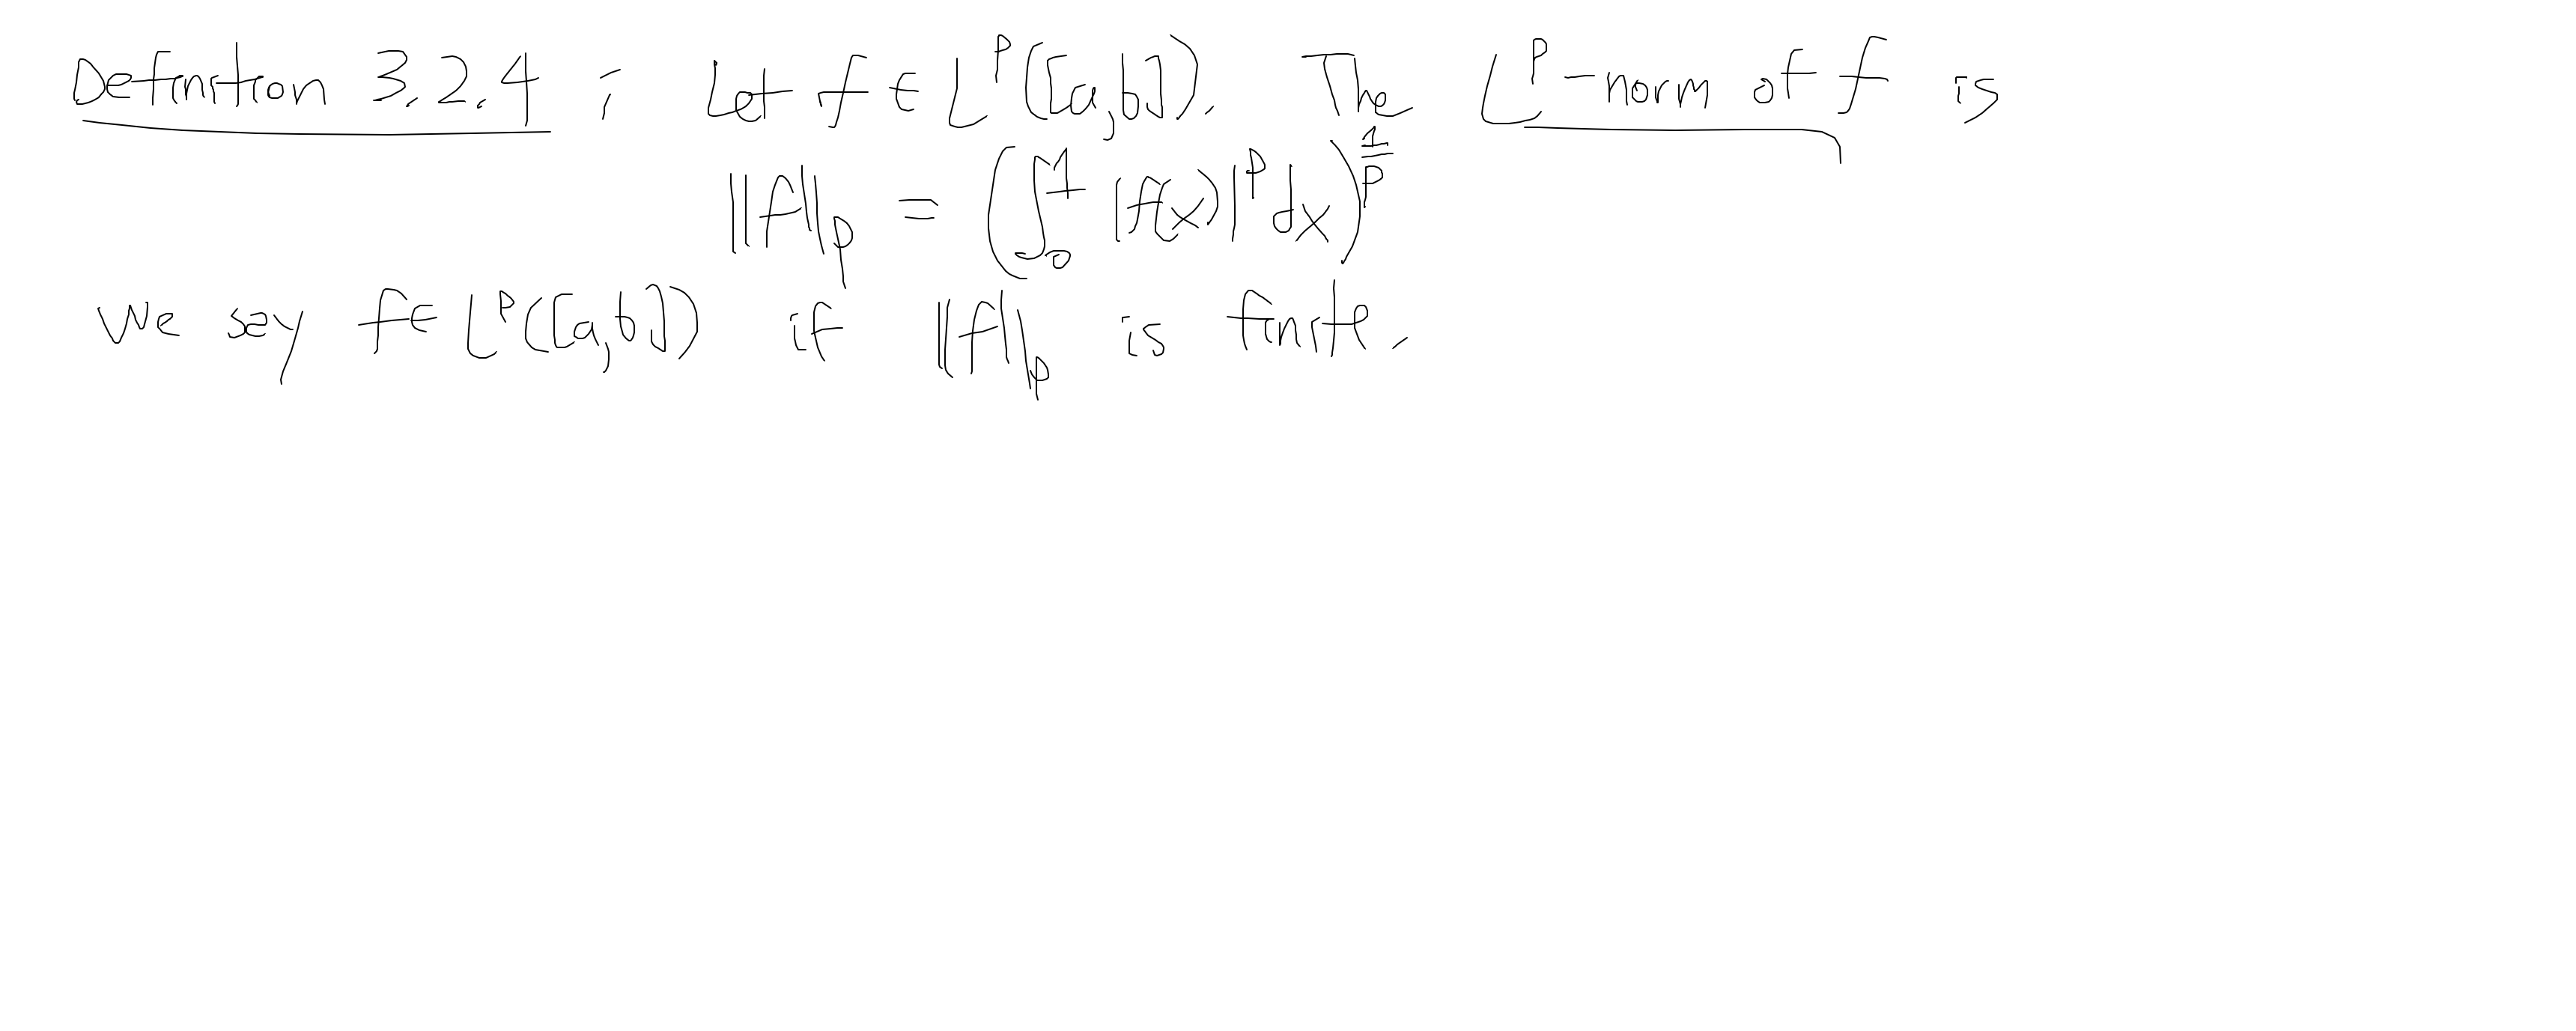 Definition 3.2.4 : Let f ∈ L^p([a,b]). The L^p-norm of f is
||f||_p = (∫_0^1 |f(x)|^p dx)^{1/p}
We say f ∈ L^p([a,b]) if ||f||_p is finite.